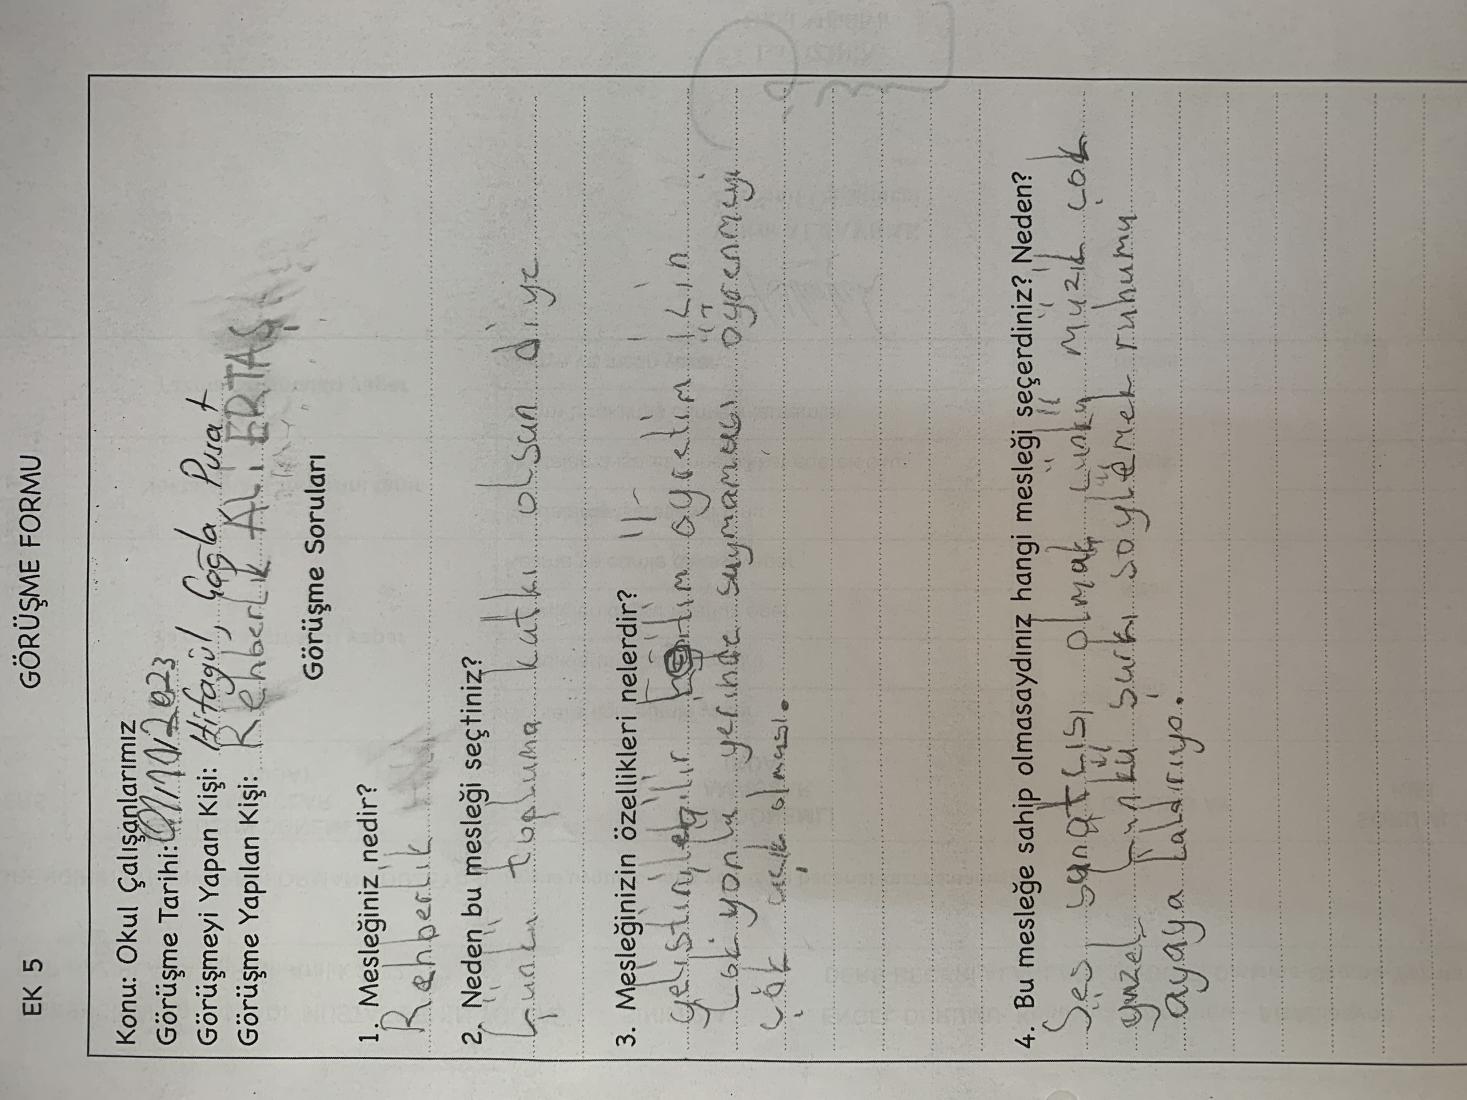 EK 5
GÖRÜŞME FORMU
Konu: Okul Çalışanlarımız
Görüşme Tarihi:
Görüşmeyi Yapan Kişi: Hifagül, Çağla Pusat
Görüşme Yapılan Kişi: Rehberlik ALİ ERTAŞ
Görüşme Soruları
1. Mesleğiniz nedir?
Rehberlik
2. Neden bu mesleği seçtiniz?
Çünkü topluma katkı olsun diye
3. Mesleğinizin özellikleri nelerdir?
öğretim için
çok yönlü yerinde saymaması öğrenmeyi
çok açık olması.
4. Bu mesleğe sahip olmasaydınız hangi mesleği seçerdiniz? Neden?
Ses sanatçısı olmak çünkü müzik çok
güzel çünkü şarkı söylemek ruhumu
ayaya kaldırıyo.